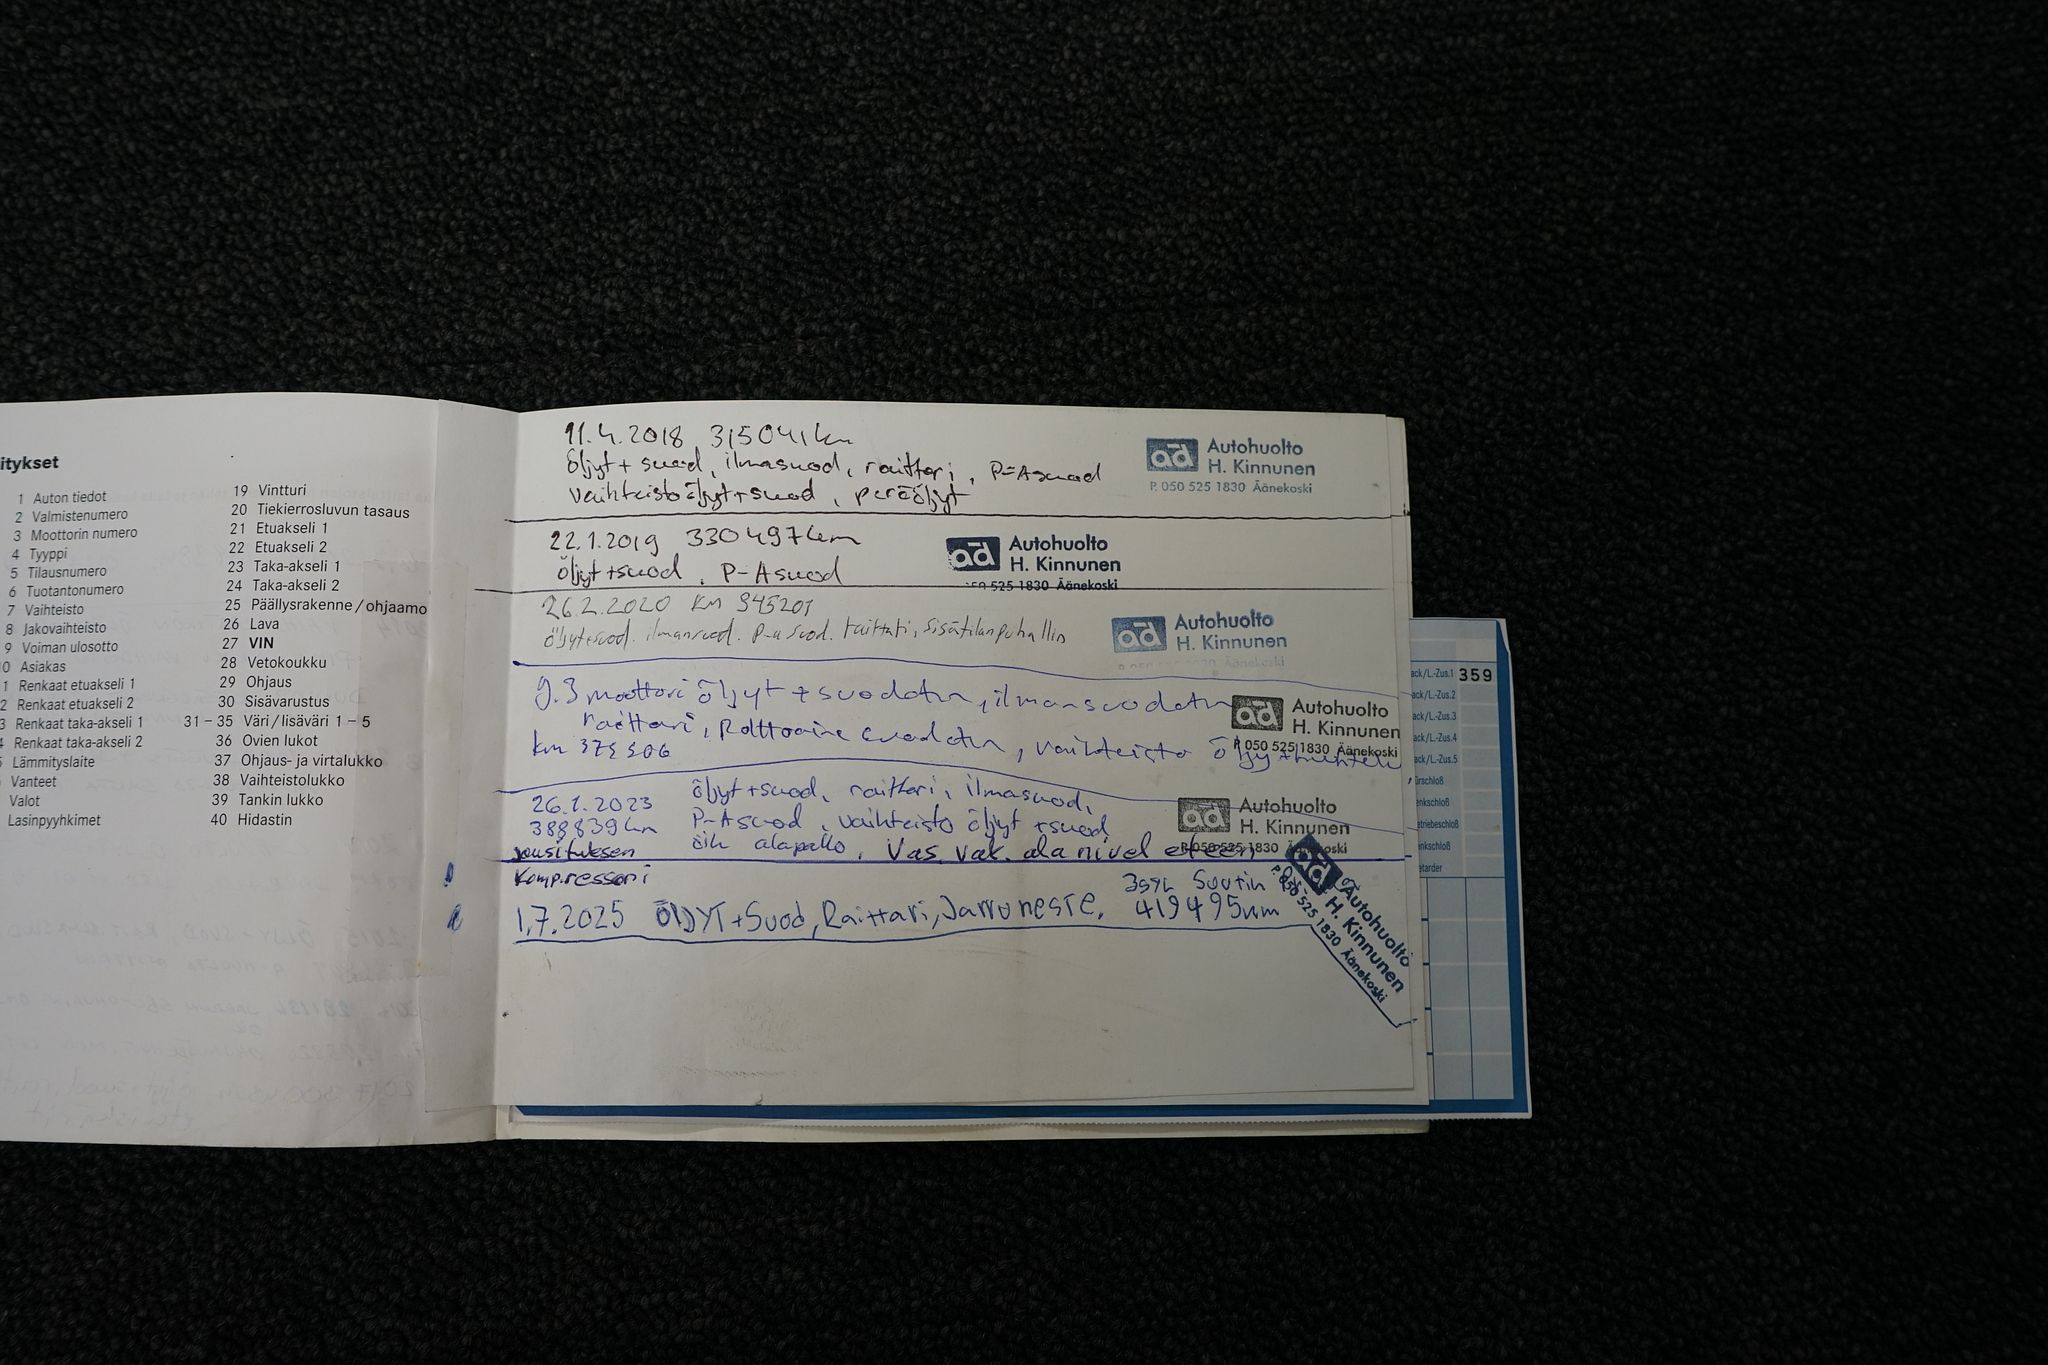 itykset
1 Auton tiedot
2 Valmistenumero
3 Moottorin numero
4 Tyyppi
5 Tilausnumero
6 Tuotantonumero
7 Vaihteisto
8 Jakovaihteisto
9 Voiman ulosotto
10 Asiakas
1 Renkaat etuakseli 1
2 Renkaat etuakseli 2
3 Renkaat taka-akseli 1
4 Renkaat taka-akseli 2
5 Lämmityslaite
Vanteet
Valot
Lasinpyyhkimet
19 Vintturi
20 Tiekierrosluvun tasaus
21 Etuakseli 1
22 Etuakseli 2
23 Taka-akseli 1
24 Taka-akseli 2
25 Päällysrakenne/ohjaamo
26 Lava
27 VIN
28 Vetokoukku
29 Ohjaus
30 Sisävarustus
31–35 Väri/lisäväri 1–5
36 Ovien lukot
37 Ohjaus- ja virtalukko
38 Vaihteistolukko
39 Tankin lukko
40 Hidastin
11.4.2018 315041km
öljyt + suod, ilmasuod, raittari, P-Asuod
vaihteistoöljyt+suod, peräöljyt
ad Autohuolto
H. Kinnunen
P. 050 525 1830 Äänekoski
22.1.2019 330497km
öljyt+suod, P-Asuod
ad Autohuolto
H. Kinnunen
525 1830 Äänekoski
26.2.2020 KM 345201
öljyt+suod. ilmansuod. P-a suod. raittari, sisätilanpuhallin
ad Autohuolto
H. Kinnunen
Äänekoski
9.3 moottori öljyt + suodatin, ilmansuodatin
raittari, Polttoaine suodatin, vaihteisto öljyt
km 375506
ad Autohuolto
H. Kinnunen
P. 050 525 1830 Äänekoski
26.1.2023 öljyt+suod, raittari, ilmasuod,
388839km P-Asuod, vaihteisto öljyt +suod,
jousituksen oik alapallo, Vas. vak. alanivel eteen
Kompressori
ad Autohuolto
H. Kinnunen
P. 050 525 1830
1.7.2025 ÖlJYT+Suod, Raittari, Jarruneste, 419495km
ad Autohuolto
H. Kinnunen
P. 050 525 1830 Äänekoski
ack/L.-Zus.1 359
ack/L.-Zus.2
ack/L.-Zus.3
ack/L.-Zus.4
ack/L.-Zus.5
ürschloß
enkschloß
etriebeschloß
ankschloß
etarder